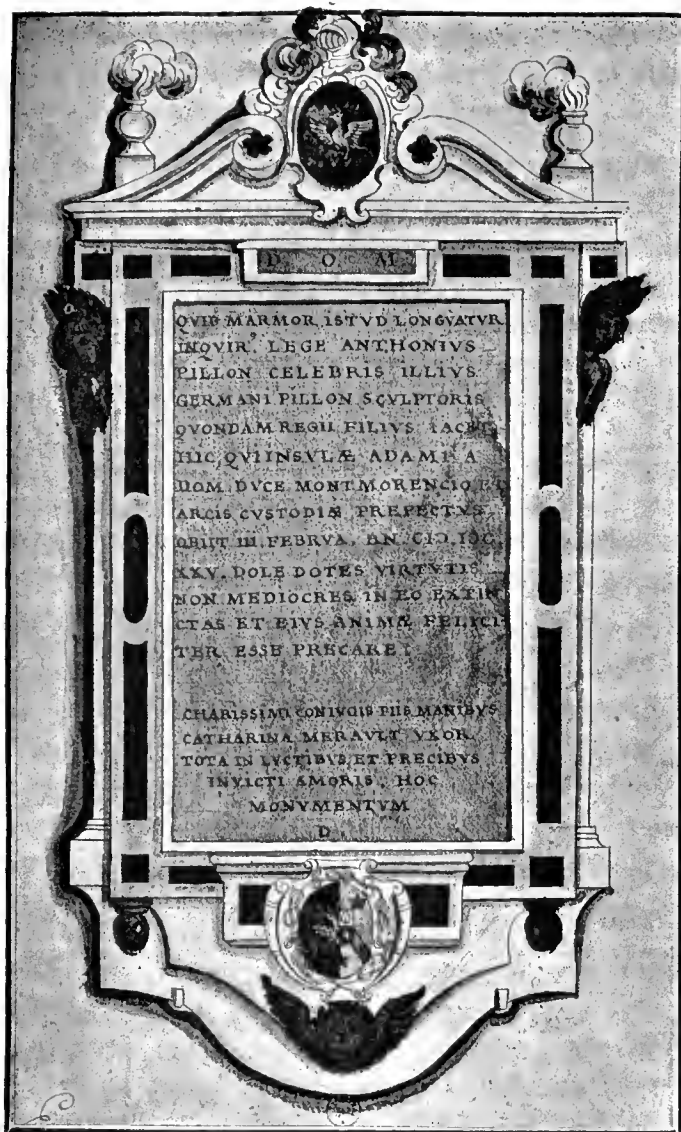 D O M
QVID MARMOR ISTVD LONGVATVR
INQVIR. LEGE ANTHONIVS
PILLON CELEBRIS ILLIVS
GERMANI PILLON SCVLPTORIS
QVONDAM REGII FILIVS IACET
HIC, QVI INSVLÆ ADAMI A
DOM. DVCE MONTMORENCIO ET
ARCIS CVSTODIÆ PREPECTVS
OBIIT III. FEBRVA. AN. CIↃ.IↃC.
XXV. DOLE DOTES VIRTVTIS
NON MEDIOCRES IN EO EXTIN
CTAS ET EIVS ANIMÆ FELICI-
TER ESSE PRECARE.
CHARISSIMI CONIVGIS PIIS MANIBVS
CATHARINA MERAVLT VXOR
TOTA IN LVCTIBVS, ET PRECIBVS
INVICTI AMORIS, HOC
MONVMENTVM
D.